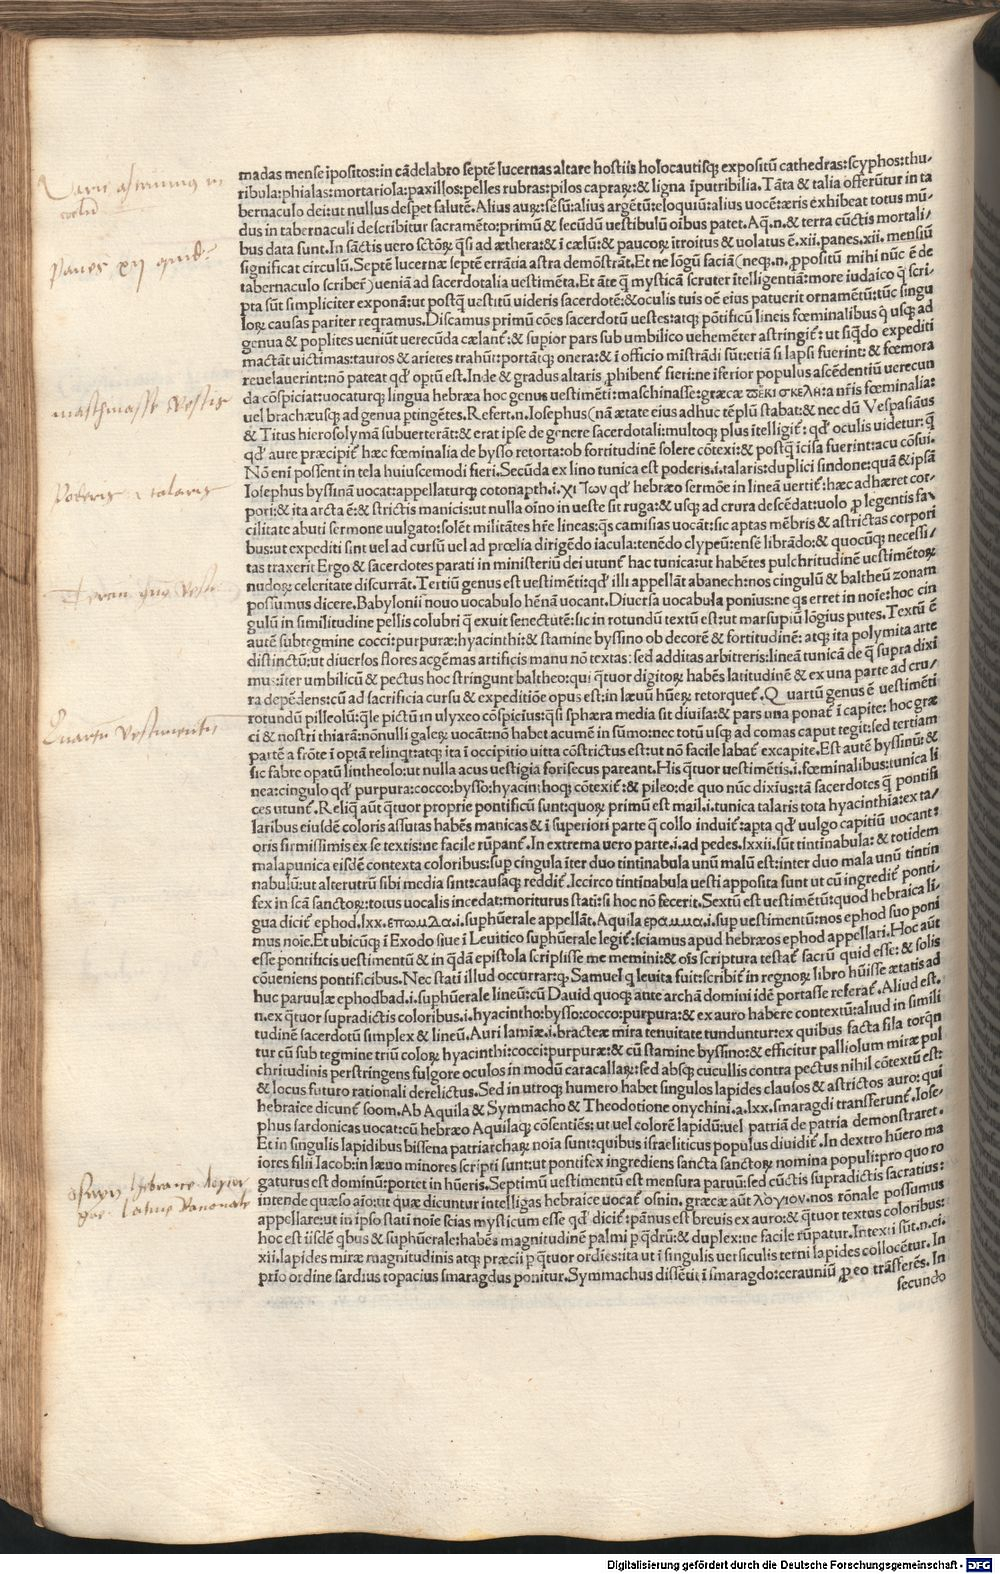 madas mense īpositos:in cādelabro septē lucernas altare hostiis holocautisq; expositū cathedras:scyphos:thu-
ribula:phialas:mortariola:paxillos:pelles rubras:pilos capraꝝ:& ligna īputribilia.Tāta & talia offerūtur in ta
bernaculo dei:ut nullus despet salutē.Alius auꝝ:sēsū:alius argētū:eloquiū:alius uocē:æris exhibeat totus mū-
dus in tabernaculi describitur sacramēto:primū & secūdū uestibulū oībus patet.Aq.n.& terra cūctis mortali/
bus data sunt.In sāctis uero sctōꝝ qsi ad æthera:& ī cælū:& paucoꝝ ītroitus & uolatus ē.xii.panes.xii. mensiū
significat circulū.Septē lucernæ septē errācia astra demōstrāt.Et ne lōgū faciā(neq;.n.ꝓpositū mihi nūc ē de
tabernaculo scriber̄)ueniā ad sacerdotalia uestimēta.Et āte q̄ mysticā scruter ītelligentiā:more iudaico q̄ scri-
pta sūt simpliciter exponā:ut postq̄ uestitū uideris sacerdotē:&oculis tuis oē eius patuerit ornamētū:tūc singu
loꝝ causas pariter reqramus.Discamus primū cōes sacerdotū uestes:atq; pōtificū lineis fœminalibus q̄ usq; ad
genua & poplites ueniūt uerecūda cælant̄:& supior pars sub umbilico uehemēter astringit̄: ut siqdo expediti
mactāt uictimas:tauros & arietes trahūt:portātq; onera:& ī officio mīstrādi sūt:etiā si lapsi fuerint: & fœmora
reuelauerint:nō pateat qd̄ optū est.Inde & gradus altaris ꝓhibent̄ fieri:ne īferior populus ascēdentiū uerecun
da cōspiciat:uocaturq; lingua hebræa hoc genus uestimēti:maschinasse:græcæ ϖεκι σκελη:a nr̄is fœminalia:
uel brachæusq; ad genua ptingētes.Refert.n.Iosephus(nā ætate eius adhuc tēplū stabat:& nec dū Vespasiāus
& Titus hierosolymā subuerterāt:& erat ipse de genere sacerdotali:multoq; plus ītelligit̄: qd̄ oculis uidetur: q̄
qd̄ aure præcipit̄ hæc fœminalia de bysso retorta:ob fortitudinē solere cōtexi:& postq̄ īcisa fuerint:acu cōsui.
Nō enī possent in tela huiuscemodi fieri.Secūda ex lino tunica est poderis.i.talaris:duplici sindone:quā & ipsā
Iosephus byssinā uocat:appellaturq; cotonapth.i.χιτων qd̄ hebræo sermōe in lineā uertit̄:hæc adhæret cor-
pori:& ita arcta ē:& strictis manicis:ut nulla oīno in ueste sit ruga:& usq; ad crura descēdat:uolo ꝓ legentis fa-
cilitate abuti sermone uulgato:solēt militātes hr̄e lineas:q̄s camisias uocāt:sic aptas mēbris & astrictas corpori
bus:ut expediti sint uel ad cursū uel ad prœlia dirigēdo iacula:tenēdo clypeū:ensē librādo:& quocūq; necessi/
tas traxerit Ergo & sacerdotes parati in ministeriū dei utunt̄ hac tunica:ut habētes pulchritudinē uestimētoꝝ
nudoꝝ celeritate discurrāt.Tertiū genus est uestimēti:qd̄ illi appellāt abanech:nos cingulū & baltheū zonam
possumus dicere.Babylonii nouo uocabulo hēnā uocant.Diuersa uocabula ponius:ne qs erret in noie:hoc cin
gulū in similitudine pellis colubri q̄ exuit senectutē:sic in rotundū textū est:ut marsupiū lōgius putes.Textū ē
autē subtegmine cocci:purpuræ:hyacinthi:& stamine byssino ob decorē & fortitudinē: atq; ita polymita arte
distinctū:ut diuersos flores acgēmas artificis manu nō textas: sed additas arbitreris:lineā tunicā de q̄ supra dixi
mus:īter umbilicū & pectus hoc stringunt baltheo:qui q̄tuor digitoꝝ habēs latitudinē & ex una parte ad cru/
ra depēdens:cū ad sacrificia cursu & expeditiōe opus est:in læuū hūeꝝ retorquet̄.Q uartū genus ē uestimēti
rotundū pilleolū:q̄le pictū in ulyxeo cōspicius:q̄si sphæra media sit diuisa:& pars una ponat̄ ī capite: hoc græ
ci & nostri thiarā:nōnulli galeꝝ uocāt:nō habet acumē in sūmo:nec totū usq; ad comas caput tegit:sed tertiam
partē a frōte ī optā relinqt:atq; ita ī occipitio uitta cōstrictus est:ut nō facile labat̄ excapite.Est autē byssinū: &
sic fabre opatū lintheolo:ut nulla acus uestigia forisecus pareant.His q̄tuor uestimētis.i.fœminalibus:tunica li
nea:cingulo qd̄ purpura:cocco:bysso:hyacin:hoq; cōtexit̄:& pileo:de quo nūc dixius:tā sacerdotes q̄ pontifi
ces utunt̄.Reliq̄ aūt q̄tuor proprie pontificū sunt:quoꝝ primū est mail.i.tunica talaris tota hyacinthia:ex ta/
laribus eiusdē coloris assutas habēs manicas & ī superiori parte q̄ collo induit̄:apta qd̄ uulgo capitiū uocant:
oris firmissimis ex se textis:ne facile rūpant̄.In extrema uero parte.i.ad pedes.lxxii.sūt tintinabula: & totidem
malapunica eisdē contexta coloribus:sup cingula īter duo tintinabula unū malū est:inter duo mala unū tintin
nabulū:ut alterutrū sibi media sint:causaq; reddit̄.Iccirco tintinabula uesti apposita sunt ut cū ingredit̄ ponti-
fex in scā sanctoꝝ:totus uocalis incedat:moriturus stati:si hoc nō fecerit.Sextū est uestimētū:quod hebraica li-
gua dicit̄ ephod.lxx.επωμλα.i.suphūerale appellāt.Aquila εραμμα.i.sup uestimentū:nos ephod suo poni
mus noie.Et ubicūq; ī Exodo siue ī Leuitico suphūerale legit̄:sciamus apud hebræos ephod appellari.Hoc aūt
esse pontificis uestimentū & in q̄dā epistola scripsisse me memini:& oīs scriptura testat̄ sacrū quid esse: & solis
cōueniens pontificibus.Nec stati illud occurrat:q; Samuel q̄ leuita fuit:scribit̄ in regnoꝝ libro hūisse ætatis ad
huc paruulæ ephodbad.i.suphūerale lineū:cū Dauid quoq; ante archā domini idē portasse referat̄.Aliud est.
n.ex q̄tuor supradictis coloribus.i.hyacintho:bysso:cocco:purpura:& ex auro habere contextū:aliud in simili
tudinē sacerdotū simplex & lineū.Auri lamiæ.i.bracteæ mira tenuitate tunduntur:ex quibus facta fila torqn
tur cū sub tegmine triū coloꝝ hyacinthi:cocci:purpuræ:& cū stamine byssino:& efficitur palliolum miræ pul
chritudinis perstringens fulgore oculos in modū caracallaꝝ:sed absq; cucullis contra pectus nihil cōtextū est:
& locus futuro rationali derelictus.Sed in utroq; humero habet singulos lapides clausos & astrictos auro: qui
hebraice dicunt̄ soom.Ab Aquila & Symmacho & Theodotione onychini.a.lxx.smaragdi transferunt̄.Iose-
phus sardonicas uocat:cū hebræo Aquilaq; cōsentiēs:ut uel colorē lapidū:uel patriā de patria demonstraret.
Et in singulis lapidibus bissena patriarchaꝝ noia sunt:quibus israeliticus populus diuidit̄.In dextro hūero ma
iores filii Iacob:in læuo minores scripti sunt:ut pontifex ingrediens sancta sanctoꝝ nomina populi:pro quo ro
gaturus est dominū:portet in hūeris.Septimū uestimentū est mensura paruū:sed cūctis supradictis sacratius:
intende quæso aīo:ut quæ dicuntur intelligas hebraice uocat̄ osnin. græcæ aūt λογιον.nos rōnale possumus
appellare:ut in ipso stati noie scias mysticum esse qd̄ dicit̄:pānus est breuis ex auro:& q̄tuor textus coloribus:
hoc est iisdē qbus & suphūerale:habēs magnitudinē palmi p q̄drū:& duplex:ne facile rūpatur.Intexti sūt.n.ei.
xii.lapides miræ magnitudinis atq; præcii p q̄tuor ordies:ita ut ī singulis uersiculis terni lapides collocētur. In
prio ordine sardius topacius smaragdus ponitur.Symmachus dissētit ī smaragdo:cerauniū ꝓ eo trāsferēs. In
secundo
Panes xii quid?
maschnasse vestis
Poderis i talaris
genus
Quartū vestimentū
hebraice λογιον
grę. Latine Rationale
Digitalisierung gefördert durch die Deutsche Forschungsgemeinschaft - DFG